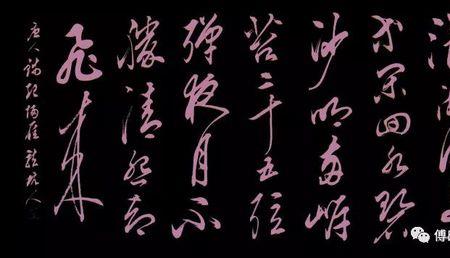 等閒回水碧
沙明兩岸
苔二十五弦
彈夜月不
勝清怨却
飛來
唐人
傅